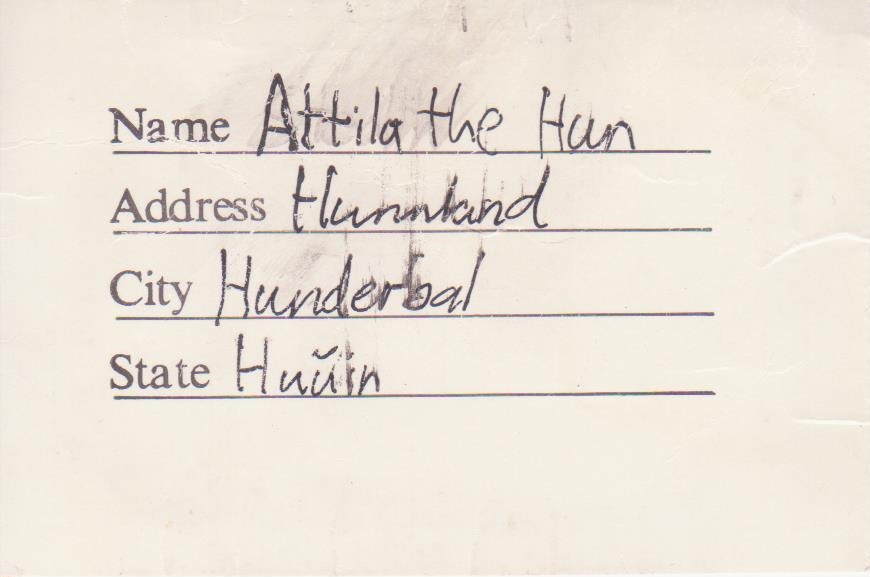 Name Attila the Hun
Address Hunnland
City Hunderbal
State Huŭin